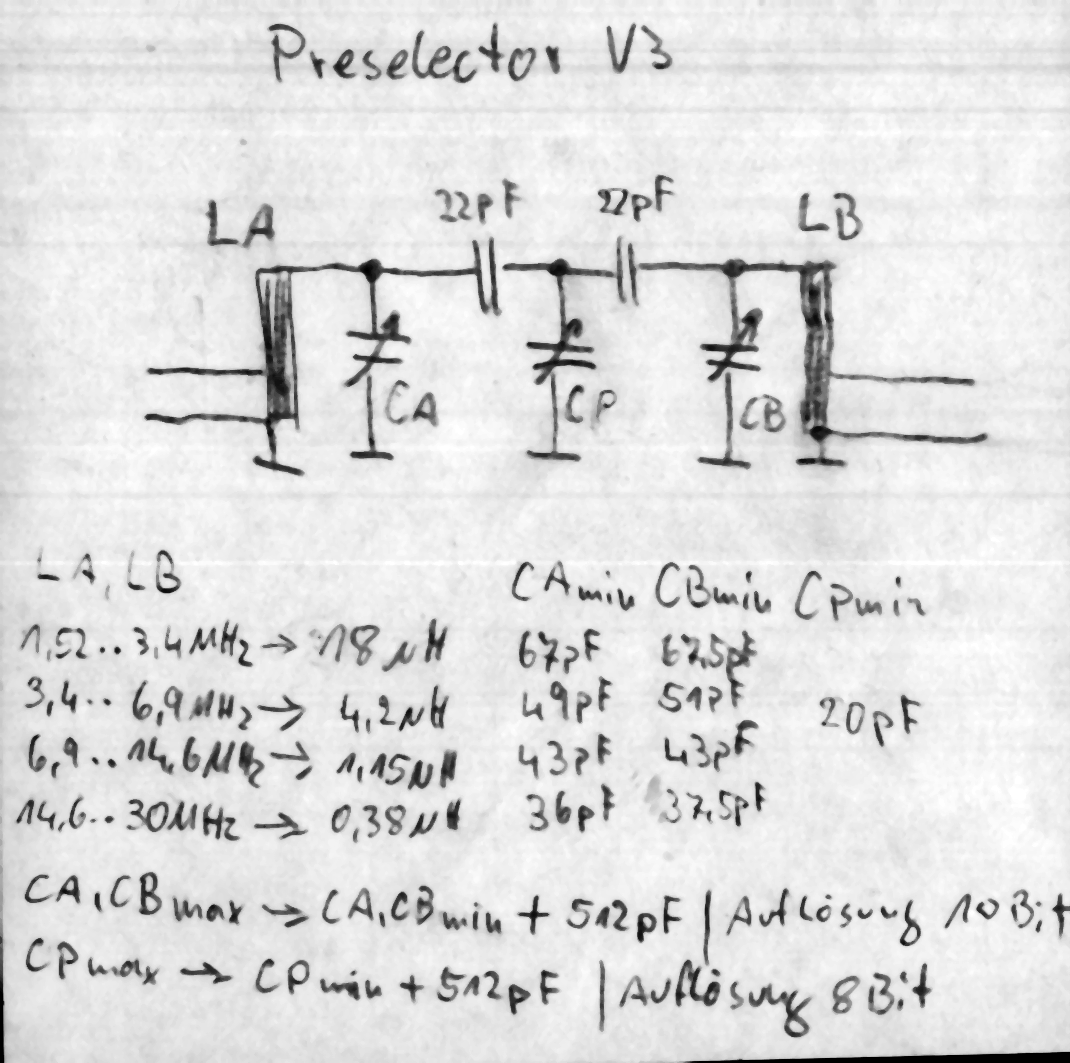 Preselector V3
22pF 22pF
LA LB
CA CP CB
LA, LB CAmin CBmin CPmin
1,52..3,4MHz → 18µH 67pF 67,5pF
3,4..6,9MHz → 4,2µH 49pF 51pF 20pF
6,9..14,6MHz → 1,15µH 43pF 43pF
14,6..30MHz → 0,38µH 36pF 37,5pF
CA,CBmax → CA,CBmin + 512pF | Auflösung 10Bit
CPmax → CPmin + 512pF | Auflösung 8Bit